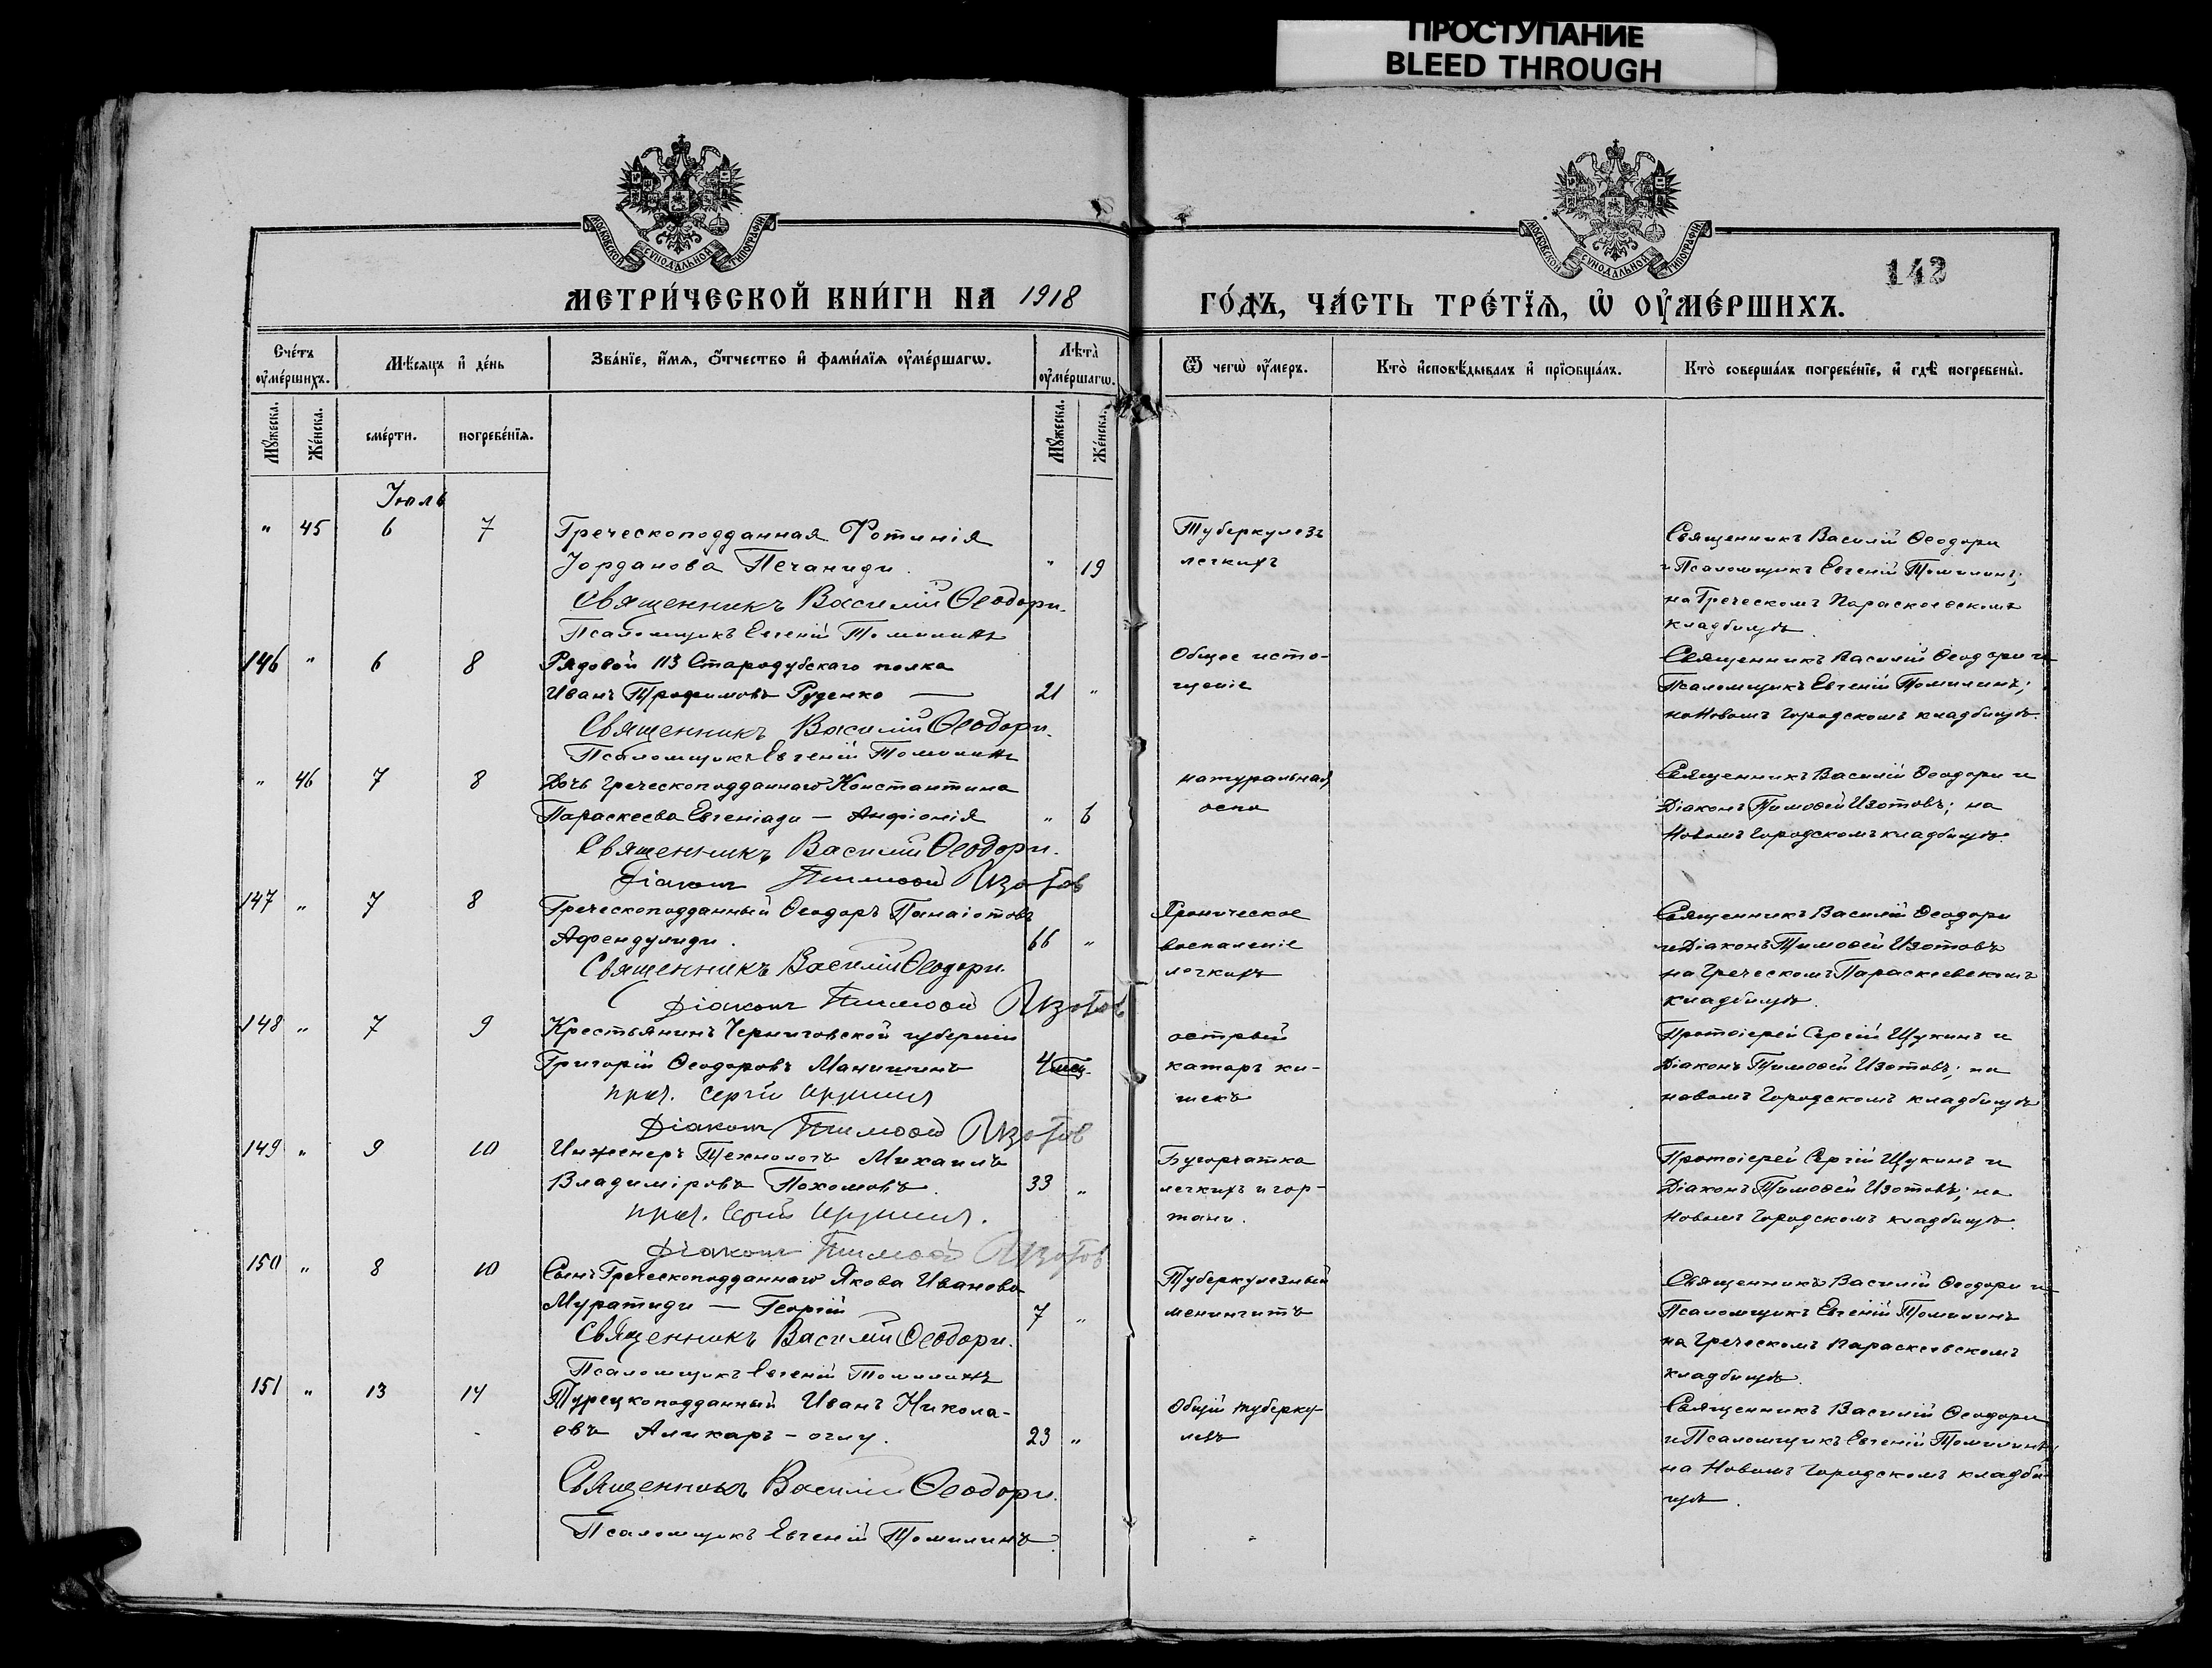 ПРОСТУПАНИЕ
BLEED THROUGH
МОСКОВСКОЙ СѴНОДАЛЬНОЙ ТИПОГРАФІИ
МОСКОВСКОЙ СѴНОДАЛЬНОЙ ТИПОГРАФІИ
142
МЕТРИ́ЧЕСКОЙ КНИ́ГИ НА 1918
ГО́ДЪ, ЧА́СТЬ ТРЕ́ТЇѦ, Ѡ҆ ОУ҆МЕ́РШИХЪ.
Сче́тъ оу҆ме́ршихъ.
Мѣ́сяцъ и҆ де́нь
Зва́нїе, и҆́мѧ, ѻ҆́тчество и҆ фами́лїѧ оу҆ме́ршагѡ.
Лѣ́та оу҆ме́ршагѡ.
Ѿ чегѡ̀ оу҆́меръ.
Кто̀ и҆сповѣ́дывалъ и҆ прїѡбща́лъ.
Кто̀ соверша́лъ погребе́нїе, и҆ гдѣ̀ погребены̀.
Мꙋ́жеска.
Же́нска.
сме́рти.
погребе́нїѧ.
Мꙋ́жеска.
Же́нска.
Іюль
" 45 6 7 Греческоподданная Фотинія
Іорданова Печаниди. " 19
Священникъ Василій Ѳеодори.
Псаломщикъ Евгеній Томилинъ
Туберкулезъ
легкихъ
Священникъ Василій Ѳеодори
и Псаломщикъ Евгеній Томилинъ;
на Греческомъ Параскевскомъ
кладбищѣ.
146 " 6 8 Рядовой 113 Стародубскаго полка
Иванъ Трофимовъ Руденко — 21 "
Священникъ Василій Ѳеодори.
Псаломщикъ Евгеній Томилинъ
Общее исто-
щеніе
Священникъ Василій Ѳеодори и
Псаломщикъ Евгеній Томилинъ;
на Новомъ Городскомъ кладбищѣ.
" 46 7 8 Дочь греческоподданнаго Константина
Параскева Евгеніади — Анфіонія " 6
Священникъ Василій Ѳеодори.
Діаконъ Тимоѳей Изотов
натуральная
оспа
Священникъ Василій Ѳеодори и
Діаконъ Тимоѳей Изотовъ; на
Новомъ Городскомъ кладбищѣ.
147 " 7 8 Греческоподданный Ѳеодоръ Панаіотовъ
Афендулиди. 66 "
Священникъ Василій Ѳеодори.
Діаконъ Тимоѳей Изотов
Хроническое
воспаленіе
легкихъ
Священникъ Василій Ѳеодори
и Діаконъ Тимоѳей Изотовъ
на Греческомъ Параскевскомъ
кладбищѣ.
148 " 7 9 Крестьянинъ Черниговской губерніи
Григорій Ѳеодоровъ Манишинъ 4 мец.
прот. Сергій Щукинъ
Діаконъ Тимоѳей Изотов
острый
катаръ ки-
шекъ
Протоіерей Сергій Щукинъ и
Діаконъ Тимоѳей Изотовъ; на
новомъ Городскомъ кладбищѣ
149 " 9 10 Инженеръ Технологъ Михаилъ
Владиміровъ Пахомовъ. 33 "
прот. Сергій Щукинъ.
Діаконъ Тимоѳей Изотов
Бугорчатка
легкихъ и гор-
тани.
Протоіерей Сергій Щукинъ и
Діаконъ Тимоѳей Изотовъ; на
Новомъ Городскомъ кладбищѣ.
150 " 8 10 Сынъ Греческоподданнаго Якова Иванова
Муратиди — Георгій 7 "
Священникъ Василій Ѳеодори.
Псаломщикъ Евгеній Томилинъ
Туберкулезный
менингитъ
Священникъ Василій Ѳеодори и
Псаломщикъ Евгеній Томилинъ
на Греческомъ Параскевскомъ
кладбищѣ.
151 " 13 14 Турецкоподданный Иванъ Никола-
евъ Аликаръ-оглу. 23 "
Священникъ Василій Ѳеодори.
Псаломщикъ Евгеній Томилинъ.
Общій туберку-
лезъ
Священникъ Василій Ѳеодори
и Псаломщикъ Евгеній Томилинъ;
на Новомъ Городскомъ кладби-
щѣ.